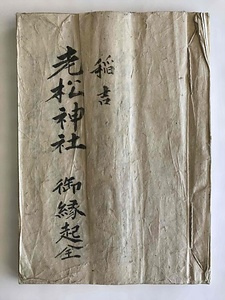 稲吉
老松神社 御縁起全